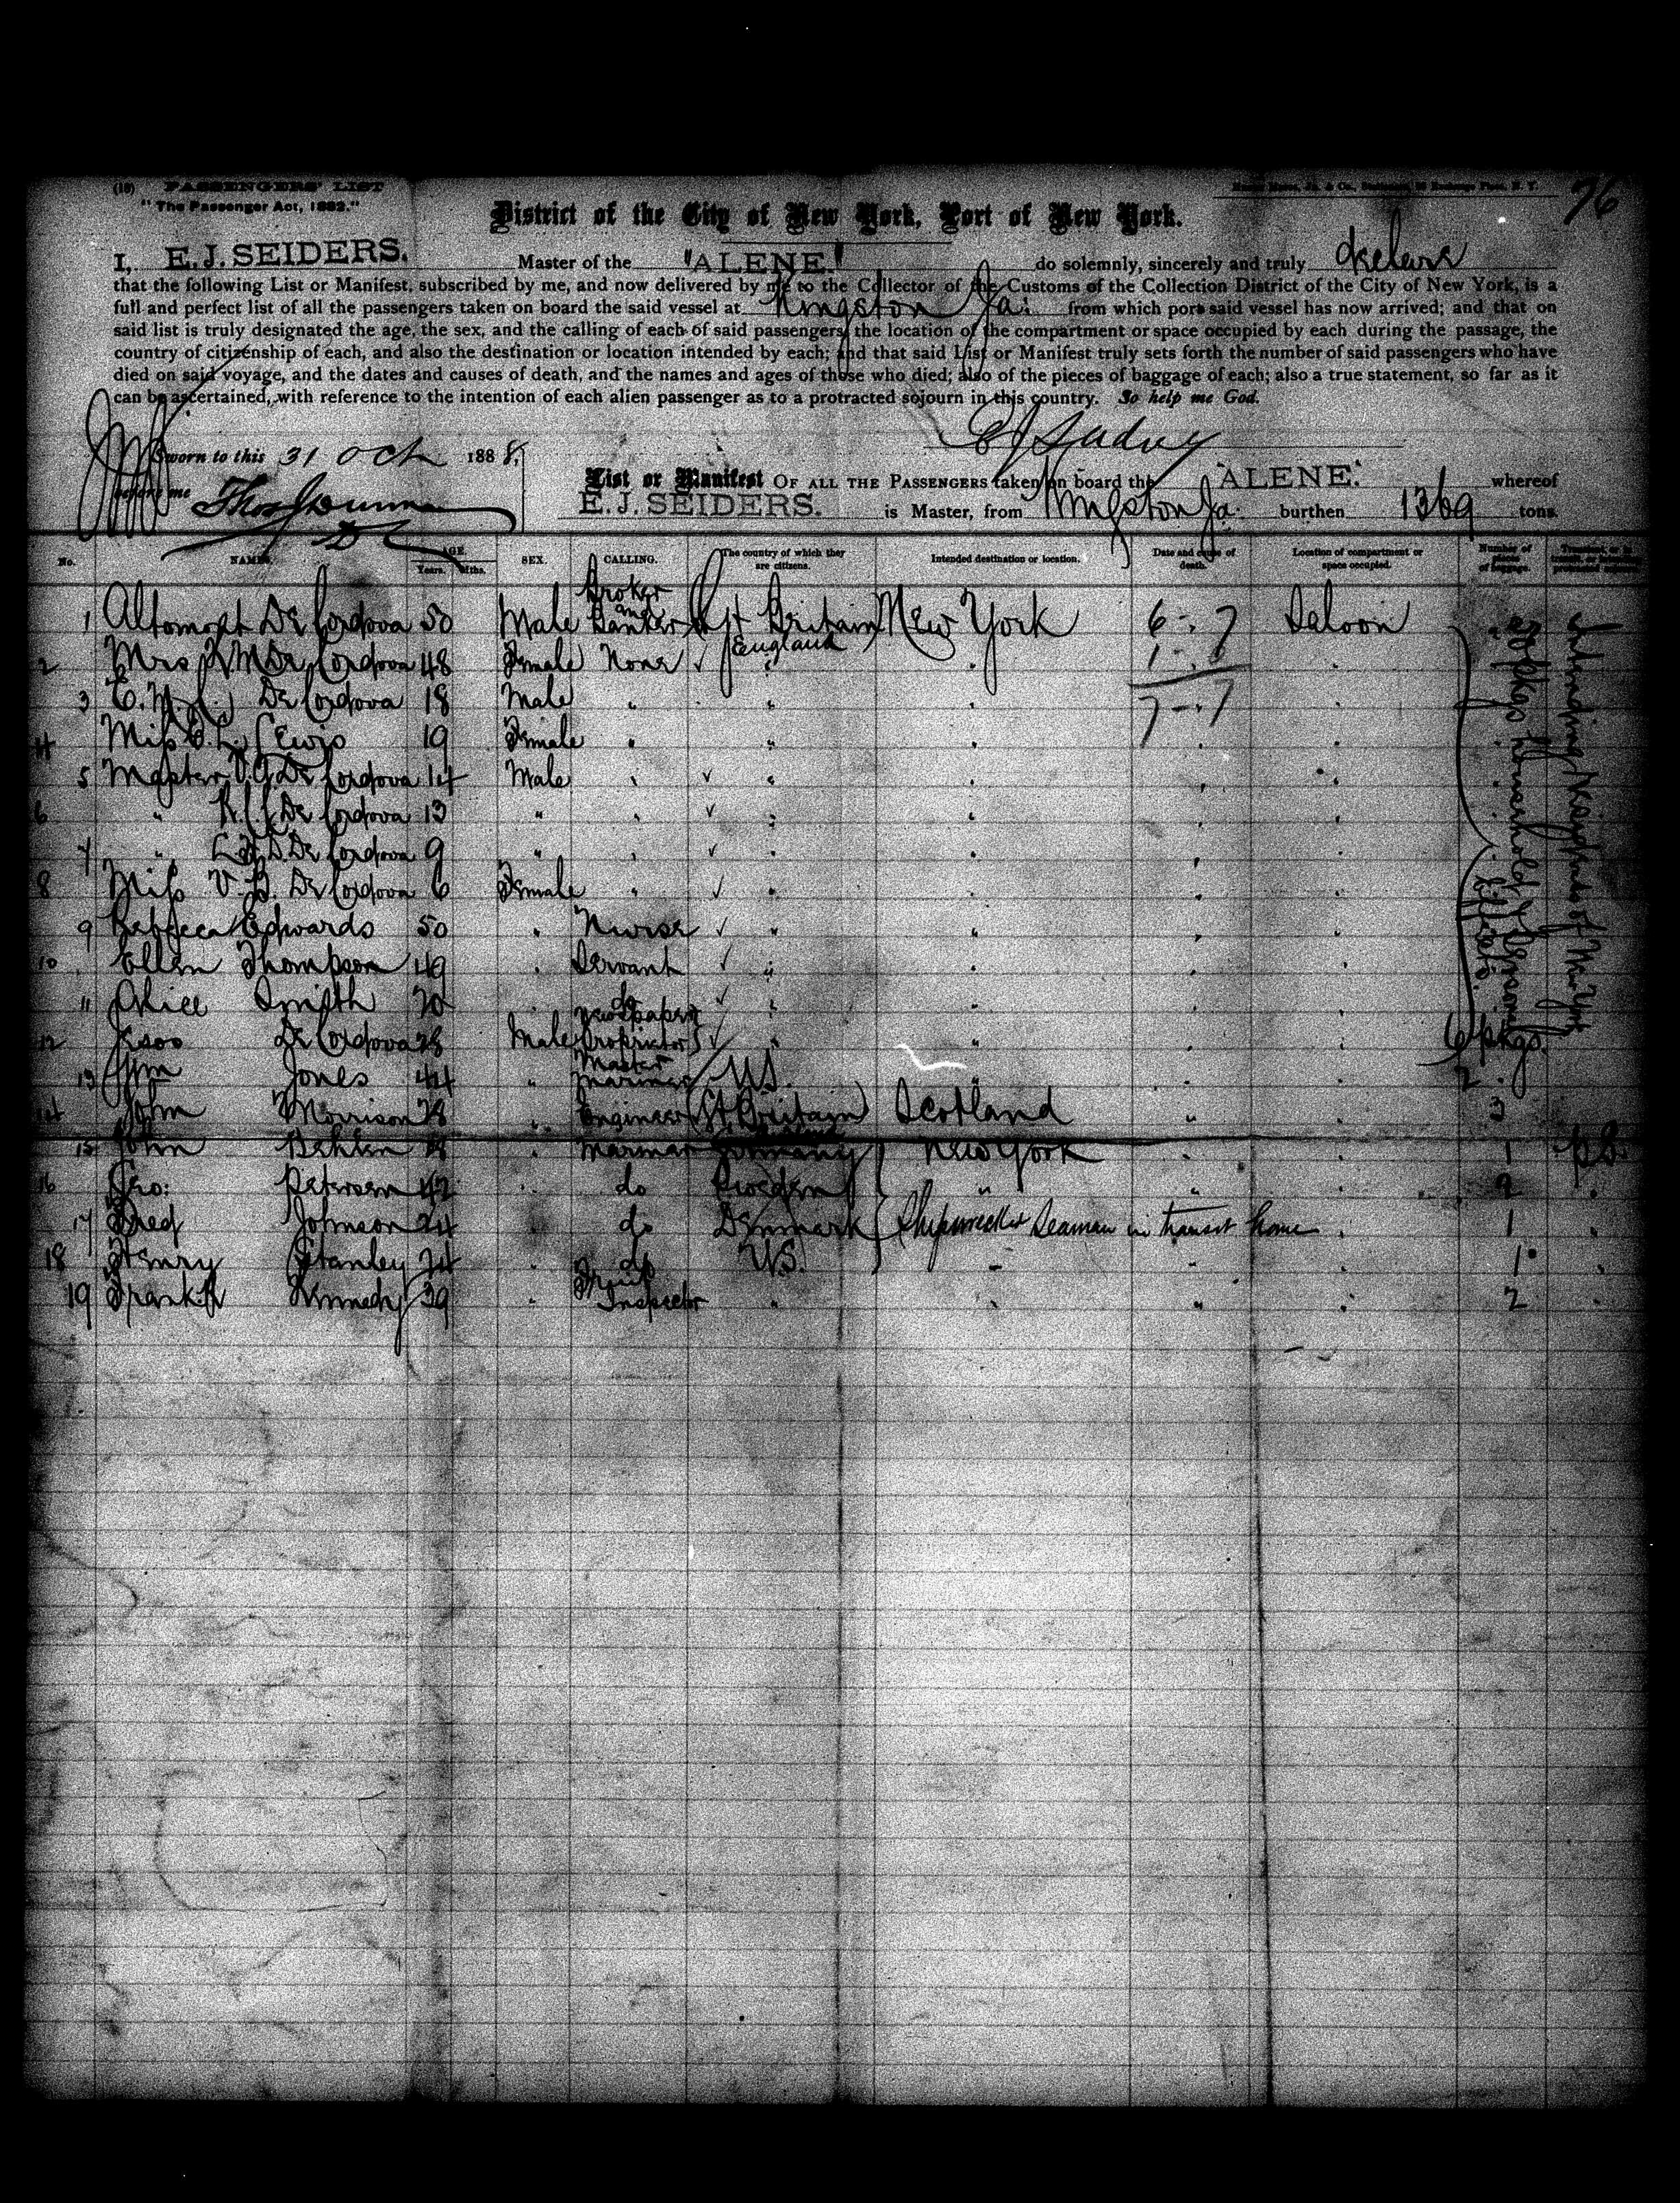 (18) PASSENGERS' LIST
"The Passenger Act, 1882."
76
District of the City of New York, Port of New York.
I, E. J. SEIDERS. Master of the "ALENE." do solemnly, sincerely and truly declare
that the following List or Manifest, subscribed by me, and now delivered by me to the Collector of the Customs of the Collection District of the City of New York, is a
full and perfect list of all the passengers taken on board the said vessel at Kingston Ja: from which port said vessel has now arrived; and that on
said list is truly designated the age, the sex, and the calling of each of said passengers, the location of the compartment or space occupied by each during the passage, the
country of citizenship of each, and also the destination or location intended by each; and that said List or Manifest truly sets forth the number of said passengers who have
died on said voyage, and the dates and causes of death, and the names and ages of those who died; also of the pieces of baggage of each; also a true statement, so far as it
can be ascertained, with reference to the intention of each alien passenger as to a protracted sojourn in this country. So help me God.
Sworn to this 31 Oct 1888,
before me
List or Manifest OF ALL THE PASSENGERS taken on board the "ALENE." whereof
E. J. SEIDERS. is Master, from Kingston Ja: burthen 1369 tons.
No. NAMES. AGE. Years. Mths. SEX. CALLING. The country of which they are citizens. Intended destination or location. Date and cause of death. Location of compartment or space occupied. Number of pieces of baggage.
1 Altamont De Cordova 50 Male Broker and Banker Gt Britain England New York 6-7 Saloon
2 Mrs De Cordova 48 Female None " " 1-7
3 De Cordova 18 Male " " " 7-7
4 Miss Lewis 19 Female " " "
5 Master De Cordova 14 Male " " "
6 " De Cordova 13 " " " "
7 " De Cordova 9 " " " "
8 Miss V. B. De Cordova 6 Female " " "
9 Rebecca Edwards 50 " Nurse " "
10 Ellen Thompson 49 " Servant " "
11 Alice Smith 20 " do " "
12 De Cordova 28 Male Newspaper Proprietor " " 6 pkgs.
13 Wm Jones 44 " Master Mariner U.S. " 2
14 John Morrison 28 " Engineer Gt Britain Scotland " 3
15 John " Mariner Germany New York " 1
16 Geo: Petersen 42 " do Sweden " "
17 Fred Johnson 24 " do Denmark Shipwrecked Seaman in transit home 1
18 Henry Stanley 24 " do U.S. " " 1
19 Frank Kennedy 39 " Fruit Inspector " " " 2